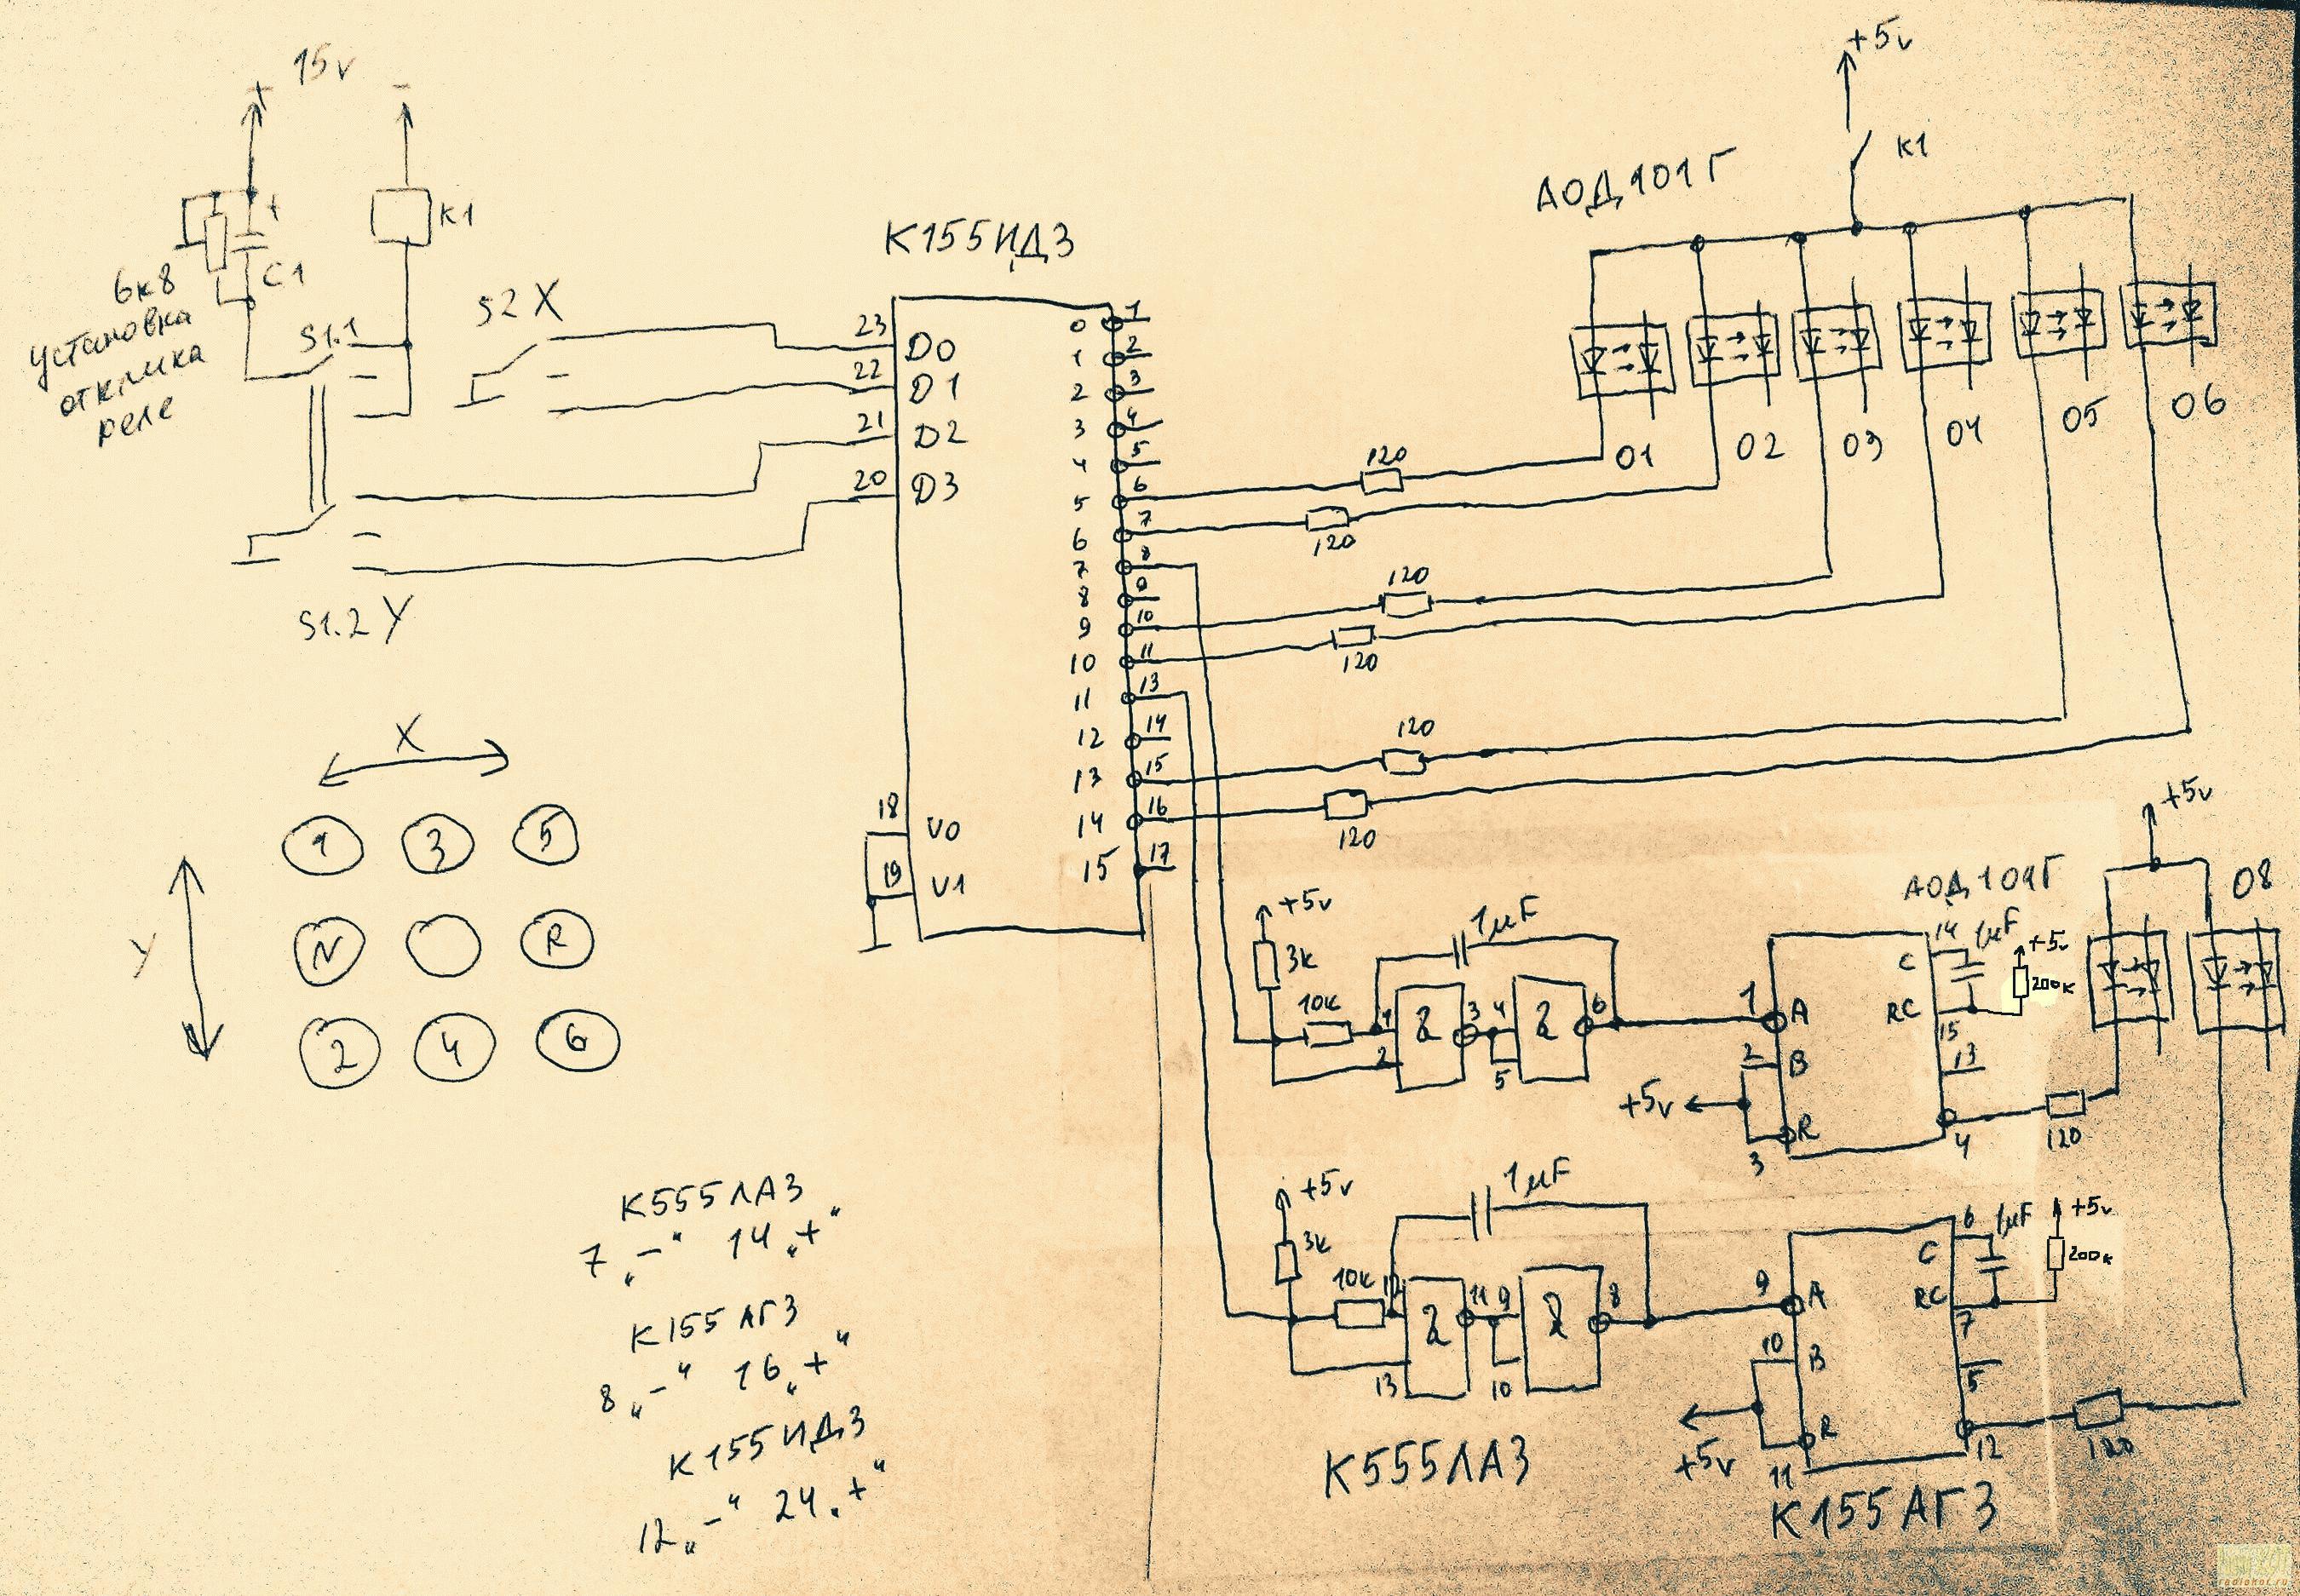 + 15v -
+5v
K1
АОД101Г
K1
+
C1
6к8
установка
отклика
реле
S1.1
S2 X
S1.2 Y
К155ИД3
23 D0
22 D1
21 D2
20 D3
18 V0
19 V1
0 1
1 2
2 3
3 4
4 5
5 6
6 7
7 8
8 9
9 10
10 11
11 13
12 14
13 15
14 16
15 17
120
120
120
120
120
120
O1
O2
O3
O4
O5
O6
X
Y
1 3 5
N R
2 4 6
+5v
3к
10к
1µF
1
2
2
3
4
5
2
6
1 A
2 B
3 R
+5v
C 14
1µF
RC 15
+5v
200к
13
4
120
АОД101Г
+5v
O8
+5v
3к
10к
1µF
12
13
2
11
9
10
2
8
9 A
10 B
11 R
+5v
C 6
1µF
RC 7
+5v
200к
5
12
120
К555ЛА3
К155АГ3
К555ЛА3
7 „-“ 14 „+“
К155АГ3
8 „-“ 16 „+“
К155ИД3
12 „-“ 24 „+“
radiokot.ru